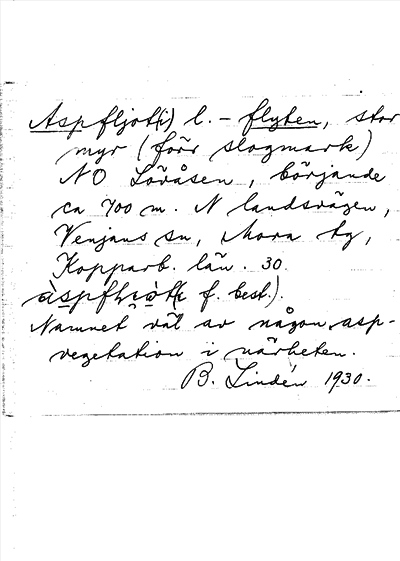 Aspfljot(i) l. - flyten, stor
myr (förr slogmark)
NO Löråsen, börjande
ca 700 m. N landsvägen,
Venjans sn, Mora tg,
Kopparb. län. 30.
f. best.).
Namnet väl av någon asp-
vegetation i närheten.
B. Lindén 1930.